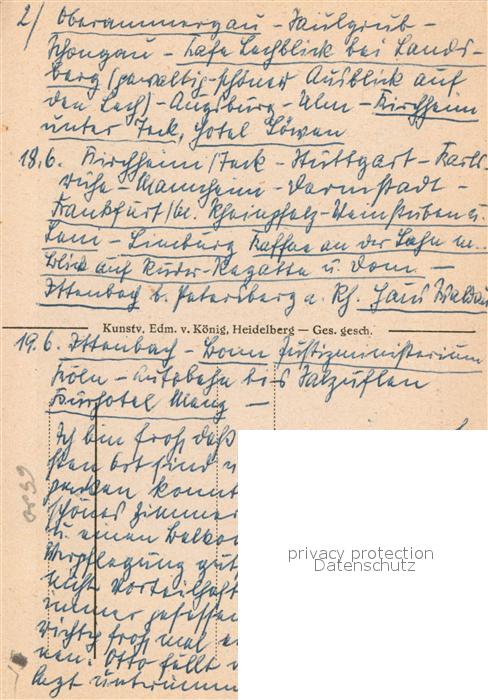 2/ Oberammergau - Saulgrub -
Schongau - Café Lechblick bei Lands-
berg (gewaltig-schöner Ausblick auf
den Lech) - Augsburg - Ulm - Kirchheim
unter Teck, Hotel Löwen
18.6. Kirchheim/Teck - Stuttgart - Karls-
ruhe - Mannheim - Darmstadt -
Frankfurt/M. Rheinpfalz-Weinstuben u.
Dom - Limburg Kaffee an der Lahn m.
Blick auf Ruder-Regatta u. Dom -
Ittenbach b. Petersberg a. Rh. Haus Waldau
Kunstv. Edm. v. König, Heidelberg — Ges. gesch.
19.6. Ittenbach - Bonn Justizministerium
Köln - Autobahn bis Salzuflen
Kurhotel Menz -
Ich bin froh, daß
sten Ort sind
konnt
schönes Zimmer
u. einen Balko
Verpflegung gut
nicht vorteilhaft
immer
richtig froh, mal
nen! Otto füllt
Arzt
privacy protection
Datenschutz